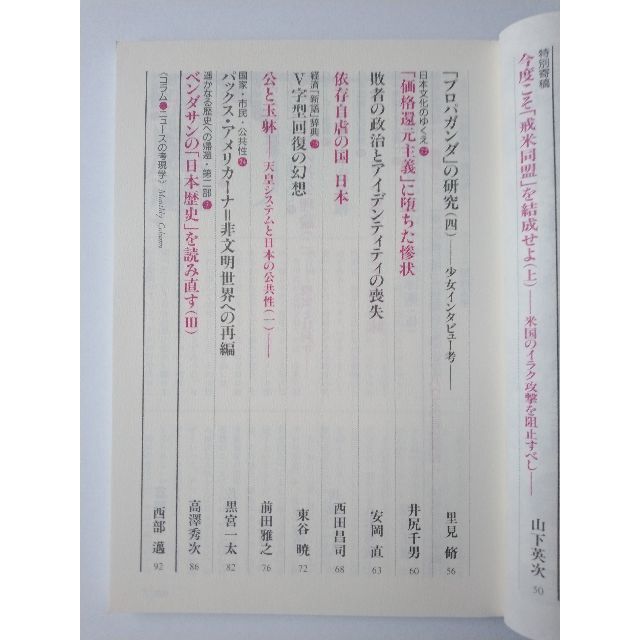 特別寄稿
今度こそ「戒米同盟」を結成せよ(上)――米国のイラク攻撃を阻止すべし――
山下英次 50
「プロパガンダ」の研究(四)――少女インタビュー考――
里見 脩 56
日本文化のゆくえ
「価格還元主義」に堕ちた惨状
井尻千男 60
敗者の政治とアイデンティティの喪失
安岡 直 63
依存自虐の国 日本
西田昌司 68
経済「新語」辞典
V字型回復の幻想
東谷 暁 72
公と玉躰――天皇システムと日本の公共性(一)――
前田雅之 76
国家・市民・公共性
パックス・アメリカーナ=非文明世界への再編
黒宮一太 82
遥かなる歴史への帰還・第二部
ベンダサンの「日本歴史」を読み直す(III)
高澤秀次 86
〈コラム〉ニュースの考現学 Monthly Column
西部 邁 92